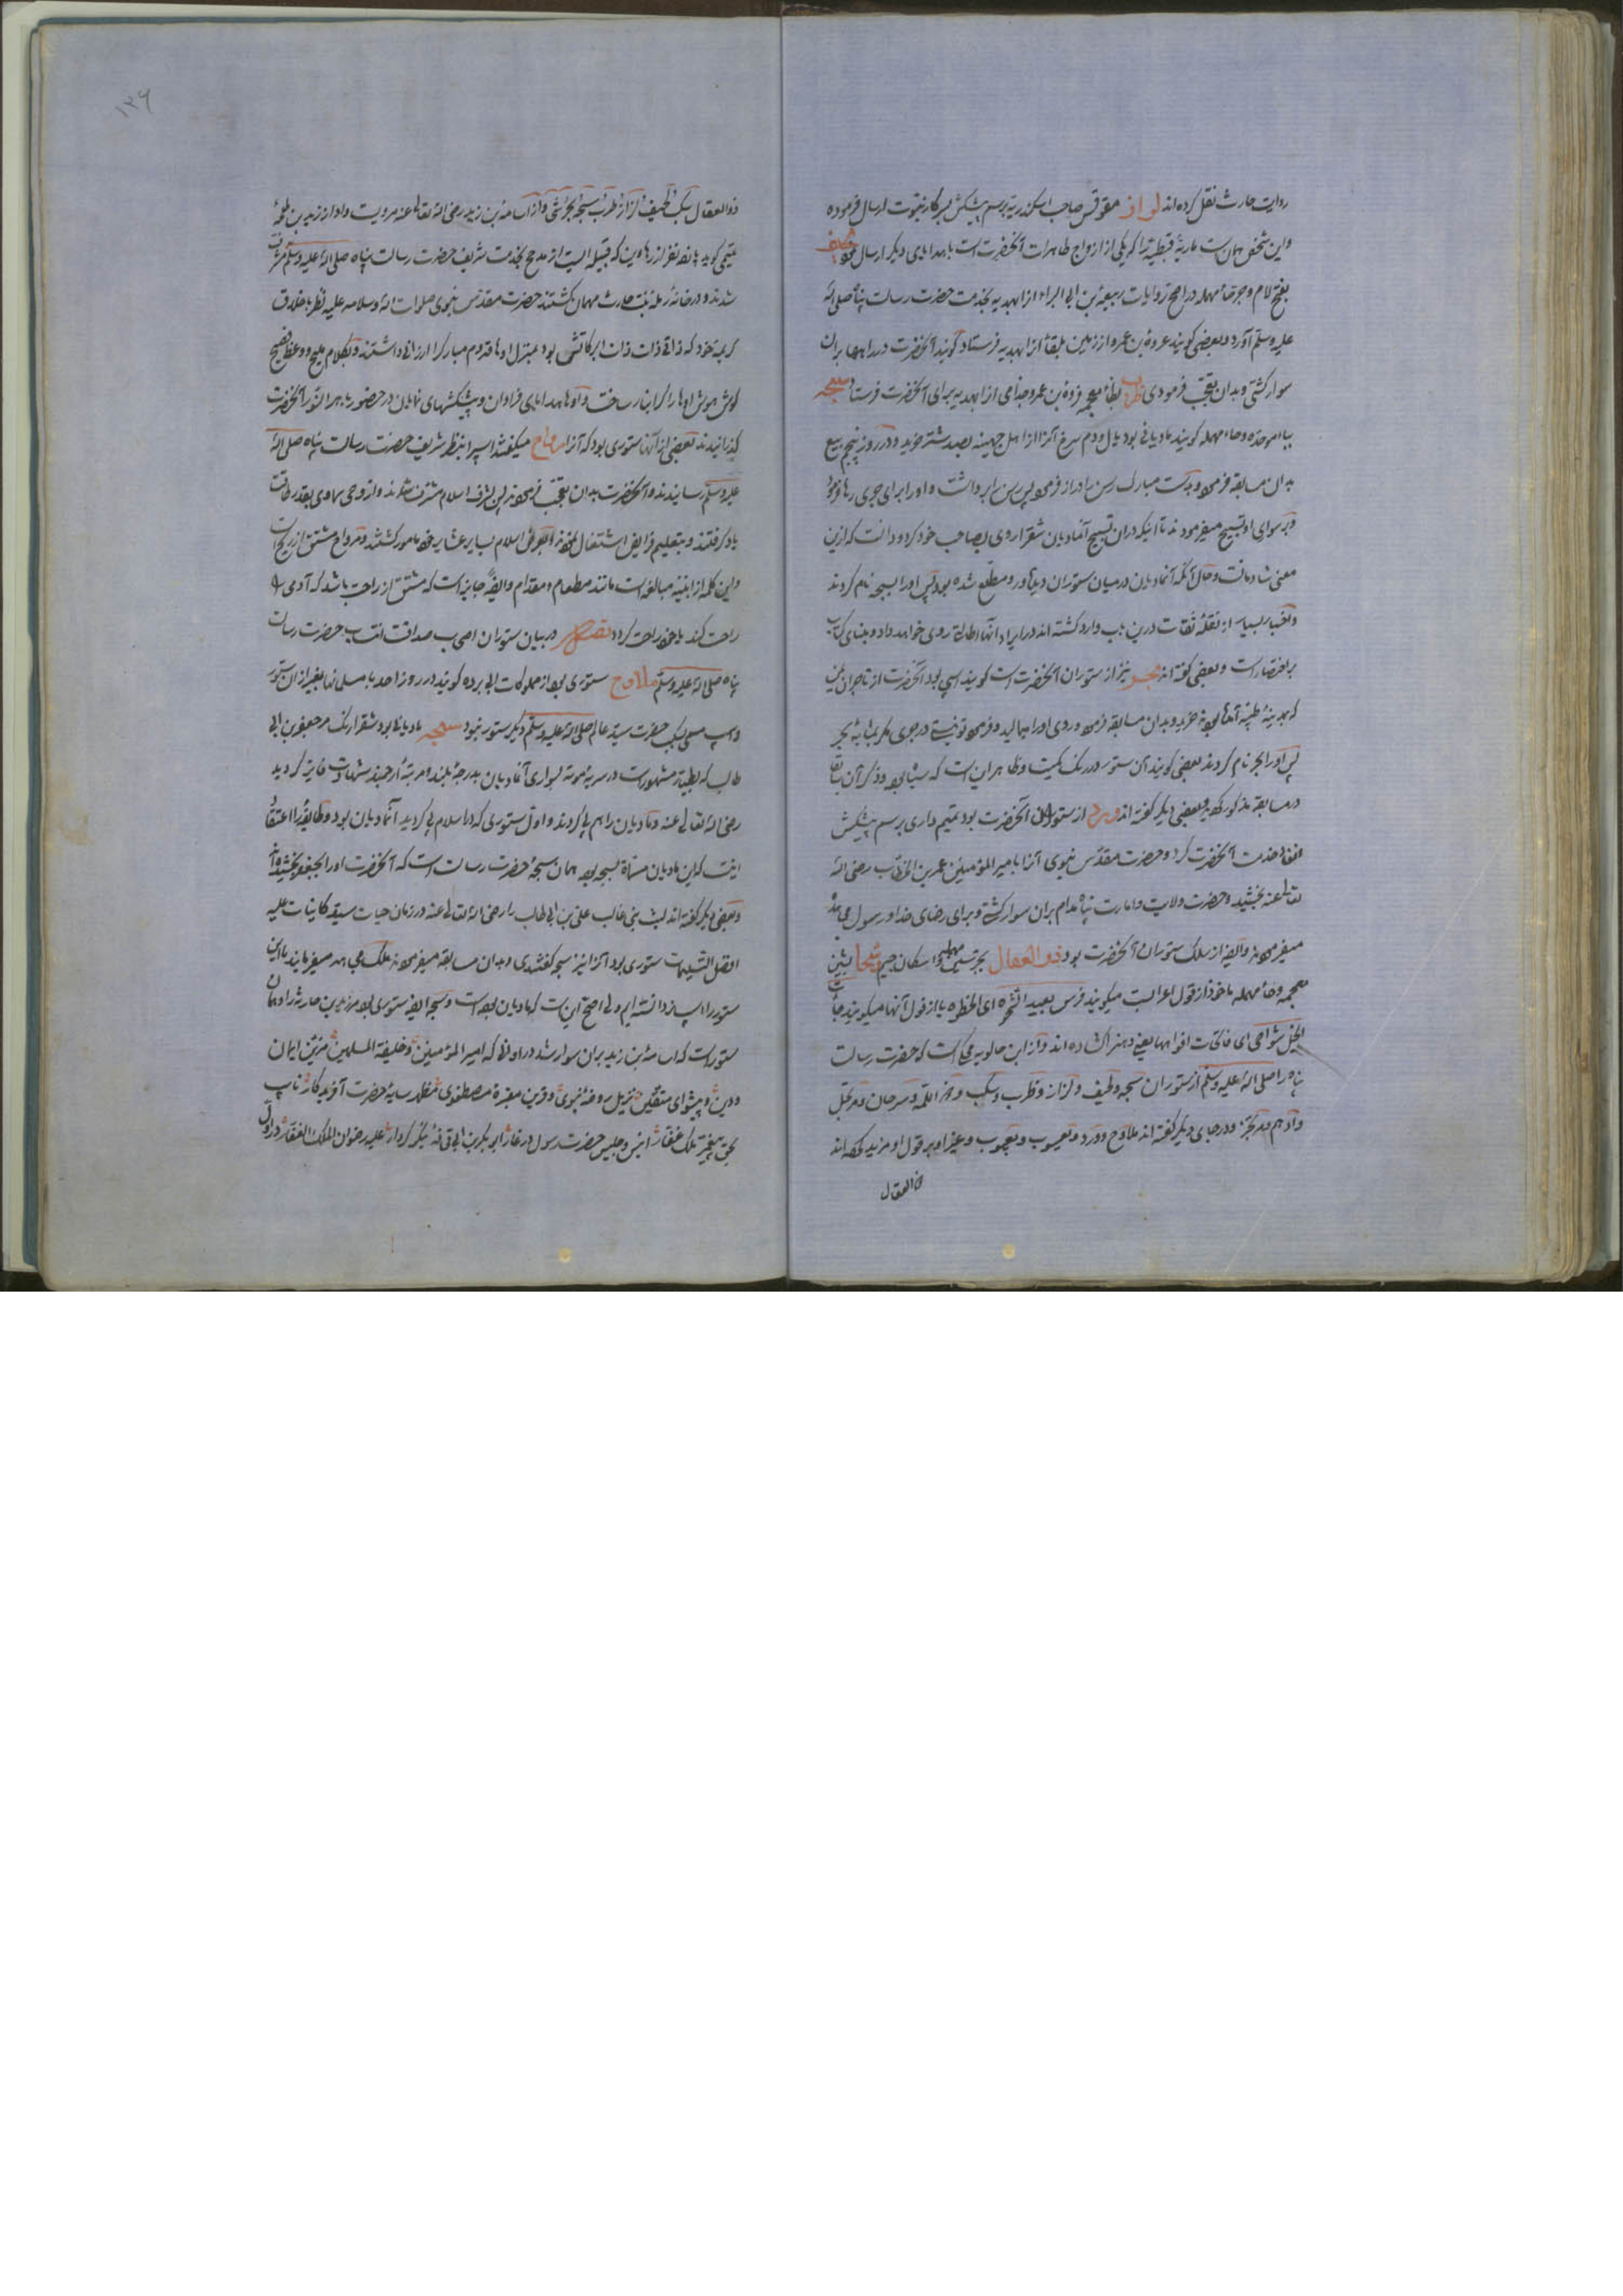 روایت حارث نقل کرده اند لزاز مقوقس صاحب اسکندریه برسم پیشکش بسرکار نبوت ارسال فرموده
واین شخص همان است ماریهٔ قبطیه را که یکی از ازواج طاهرات آنحضرت است با هدایای دیگر ارسال نموده لحیف
بفتح لام وجر حاء مهمله در اصح روایات ربیعة بن ابی البراء از ابهدیه بخدمت حضرت رسالت پناه صلی الله
علیه وسلم آورد وبعضی گویند عروة بن عمرو از زمین بلقا از ابهدیه فرستاد گویند آنحضرت در راهها بران
سوار گشتی وبدان تعجب فرمودی ظرب بظاء معجمه فروة بن عمرو جذامی از ابهدیه برای آنحضرت فرستاد سبحه
بباء موحده وحاء مهمله گویند مادیانی بود یال ودم سرخ آنرا از اهل جهینه بصد شتر خرید ودر روز پنجم ربیع
بدان مسابقه فرموده وبدست مبارک رسن را دراز فرموده پس رسن را برداشت و اورا برای جری رها فرمود
وبر سوای او تسبیح میفرمودند تا اینکه دران تسبیح آنمادیان شقرا روی بصاحب خود کرد ودانست که ازین
معنی شادمانست وحال آنکه آنمادیان درمیان ستوران دیگر ور ومطلع شده بود پس اورا سبحه نام کردند
واخبار بسیار از نقلهٔ ثقات درین باب وارد گشته اند در ایراد آنها اطالة روی خواهد داد و بنای کتاب
بر اختصار است وبعضی گفته اند بحر نیز از ستوران آنحضرت است گویند اسپی بود آنحضرت از تاجران یمن
که بمدینهٔ طیبه آمده بودند خرید وبدان مسابقه فرموده وروی اورا بمالید وفرموده تو نیستی در جوی مگر بمثابهٔ بحر
پس اورا بحر نام کردند بعضی گویند آن ستور در رنگ کمیت وظاهر این است که سیاه بود وذکر آن سابقا
در مسابقه مذکور گردید وبعضی دیگر گفته اند ورد از ستوران آنحضرت بود تمیم داری برسم پیشکش
انفاذ خدمت آنحضرت کرد وحضرت مقدس نبوی آنرا بامیر المؤمنین عمر بن الخطاب رضی الله
تعالی عنه بخشید وحضرت ولایت وامارت پناه مدام بران سوار گشتی وبرای رضای خدا ورسول مجاهده
میفرمودند وایضا از سلک ستوران آنحضرت بود ذو العقال بجر سین مهمله واسکان جیم شحا بشین
معجمه وحاء مهمله ماخوذ از قول اعراب است میگویند فرس بعید الشحوه ای الخطوه یا از قول آنها میگویند جاءت
الخیل شواحی ای فاتحات افواهها یعنی دهنرا گشاده اند واز ابن خالویه محکی است که حضرت رسالت
پناه را صلی الله علیه وسلم از ستوران سبحه ولحیف ولزاز وظرب وسکب وذو اللمة وسرحان ومرتجل
وادهم ومرتجز ودر جای دیگر گفته اند ملاوح وورد ویعسوب ویعبوب وغیر او بر قول او مزید کرده اند
ذو العقال
١٢٦
ذو العقال سکب لحیف لزاز ظرب سبحه بحر شحا واز اسامة بن زید رضی الله تعالی عنه مرویست واو از زید بن طلحهٔ
تیمی گوید پانزده نفر از رهاویین که قبیله ایست از مذحج بخدمت شریف حضرت رسالت پناه صلی الله علیه وسلم مشرف
شدند ودر خانهٔ رملهٔ بنت حارث مهمان گشتند حضرت مقدس نبوی صلوات الله وسلامه علیه نظر باخلاق
کریمهٔ خود که ذاتی ذات ذات البرکاتش بود بمنزل اوها قدوم مبارک را ارزانی داشتند وبکلام ملیح ووعظ فصیح
گوش هوش اوها را گرانبار ساخت واوها هدایای فراوان وپیشکشهای نمایان در حضور باهر النور آنحضرت
گذرانیدند بعضی از آنها ستوری بود که آنرا مرواح میگفتند اسپرا بنظر شریف حضرت رسالت پناه صلی الله
علیه وسلم رسانیدند وآنحضرت بدان تعجب فرمودند پس بشرف اسلام مشرف شدند واز وحی سماوی بقدر طاقت
یاد گرفتند وبتعلیم فرایض اشتغال نموده بعرض اسلام بسایر عشایر خود مامور گشتند ومرواح مشتق از ریح است
واین کلمه از ابنیه مبالغه است مانند مطعام ومقدام وایضا جایز است که مشتق از راحت باشد که آدمی را
راحت کند یا خود راحت گردد تفصیل در بیان ستوران اصحاب صداقت انتساب حضرت رسالت
پناه صلی الله علیه وسلم ملاوح ستوری بود از مملوکات ابو برده گویند در روز احد با مسلمانها بغیر از آن ستور
واسپ مسمی بسکب حضرت سید عالم صلی الله علیه وسلم دیگر ستور نبود سبحه مادیانی بود شقرا رنگ مر جعفر بن ابی
طالب که بطیار مشهور است در سریهٔ موته بسواری آنمادیان بدرجهٔ بلند ومرتبهٔ ارجمند شهادت فایز گردید
رضی الله تعالی عنه ومادیان را هم پی کردند واول ستوری که در اسلام پی گردید آنمادیان بود وطایفه را اعتقاد
اینست که این مادیان مسماة بسبحه بود همان سبحهٔ حضرت رسالت است که آنحضرت اورا بجعفر بخشیده اند
وبعضی دیگر گفته اند لیث بنی غالب علی بن ابی طالب را رضی الله تعالی عنه در زمان حیات سید کاینات علیه
افضل التسلیمات ستوری بود آنرا نیز سبحه گفتندی وبدان مسابقه میفرمودند ملک مجاهد میفرمایند ما این
ستور را اسپ نر دانسته ایم ولی اصح این است که مادیان بوده است وسبحه ایضا ستوری بود مر زید بن حارثه را وهمان
ستور است که اسامة بن زید بران سوار شد در اوانی که امیر المؤمنین وخلیفة المسلمین مزین ایمان
ودین وپیشوای متقین نزیل روضهٔ نبوی وقرین مقبرهٔ مصطفوی مظهر سایهٔ حضرت آفریدگار نایب
بحق پیغمبر ملک غفار انیس وجلیس حضرت رسول در غار ابو بکر بن ابی قحافه نیک کردار علیه رضوان الملک الغفار در اول